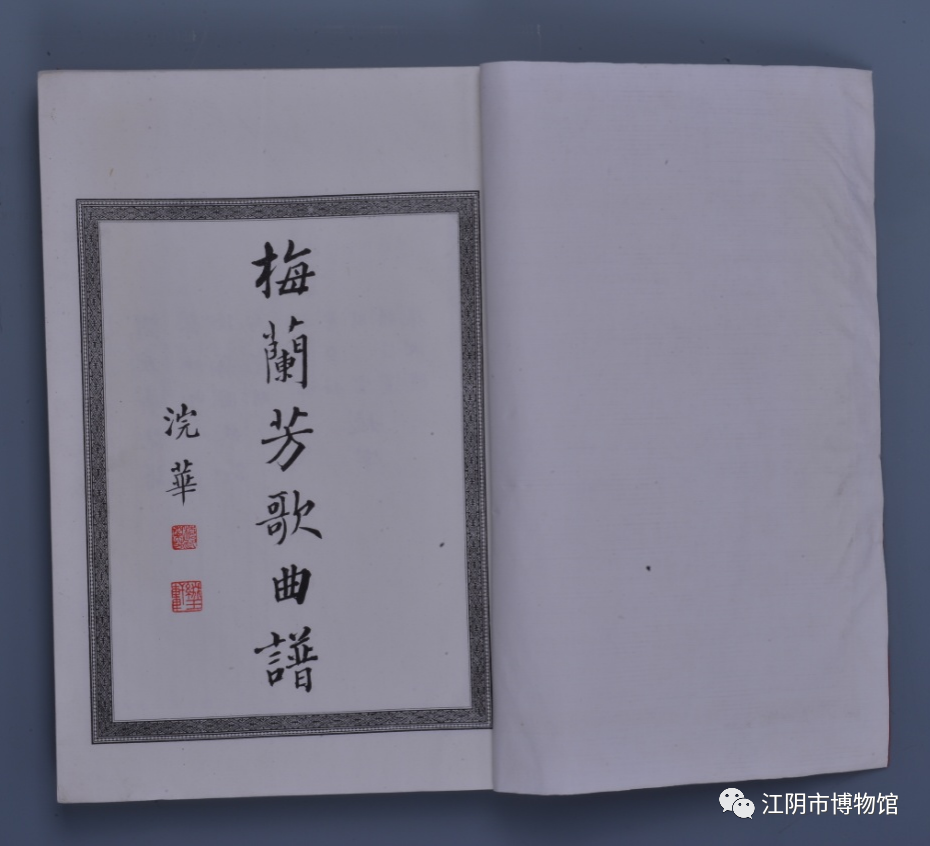 梅蘭芳歌曲譜
浣華
江阴市博物馆